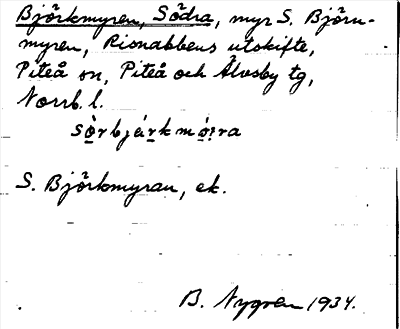 Björkmyren, Södra, myr S. Björn-
myren, Risnabbens utskifte,
Piteå sn, Piteå och Älvsby tg,
Norrb. l.
sò̤rbjärkmó̤ra
S. Björkmyran, ek.
B. Nygren 1934.